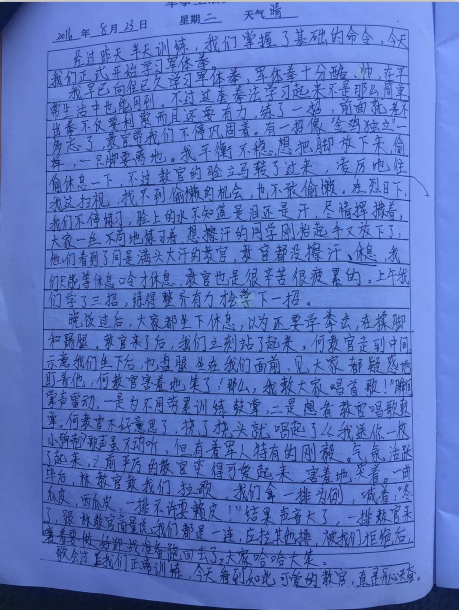 2016年 8月23日 星期二 天气晴
经过昨天半天训练,我们掌握了基础的命令,今天
我们正式开始学习军体拳。
我早已向往已久学习军体拳,军体拳十分酷、帅,在平
常生活中也能用到,不过这套拳法学习起来不是那么简单
出拳不仅要利索而且还要有力,练了一招,前面就差不
多忘了,教官带我们不停巩固着。有一招像“金鸡独立”一
样,一只脚要离地。我平衡不稳,想把脚放下来,偷
偷休息一下,不过教官的脸立马转了过来,凌厉地往
我这扫视,找不到偷懒的机会,也不敢偷懒。在烈日下,
我们不停练习,脸上的水不知道是泪还是汗,尽情挥搏着,
大家一丝不苟地练习着,想擦汗的同学刚抬起手又放下了,
他们看到了同是满头大汗的教官,教官都没擦汗、休息,我
们只能等休息口令才休息,教官也是很辛苦很疲累的。上午我
们学了三招,练得整齐有力才会学下一招。
晚饭过后,大家都坐下休息,以为还要学拳法,在揉脚
和踢腿,教官来了后,我们立刻站了起来,何教官走到中间
示意我们坐下后,也盘腿坐在我们面前,见大家都疑惑地
盯着他,何教官害羞地笑了:“那么,我教大家唱首歌!”瞬间
掌声雷动,一是为不用劳累训练鼓掌,二是想看教官唱歌鼓
掌,何教官不好意思了,挠了挠头就唱起了《我送你一枚
小弹壳》歌声虽不动听,但有着军人特有的刚毅。气氛活跃
了起来,之前严厉的教官变得可爱起来,害羞地笑着。一曲
毕后,林教官教我们拉歌,我们拿一排为例,喊着:“冬
瓜皮,西瓜皮,一排不许耍赖皮!”结果声音大了,一排教官来
了,跟林教官商量说我们都是一连,应拉其他排,被我们拒绝后,
回去了,大家哈哈大笑。
今天看到如此可爱的教官,真是